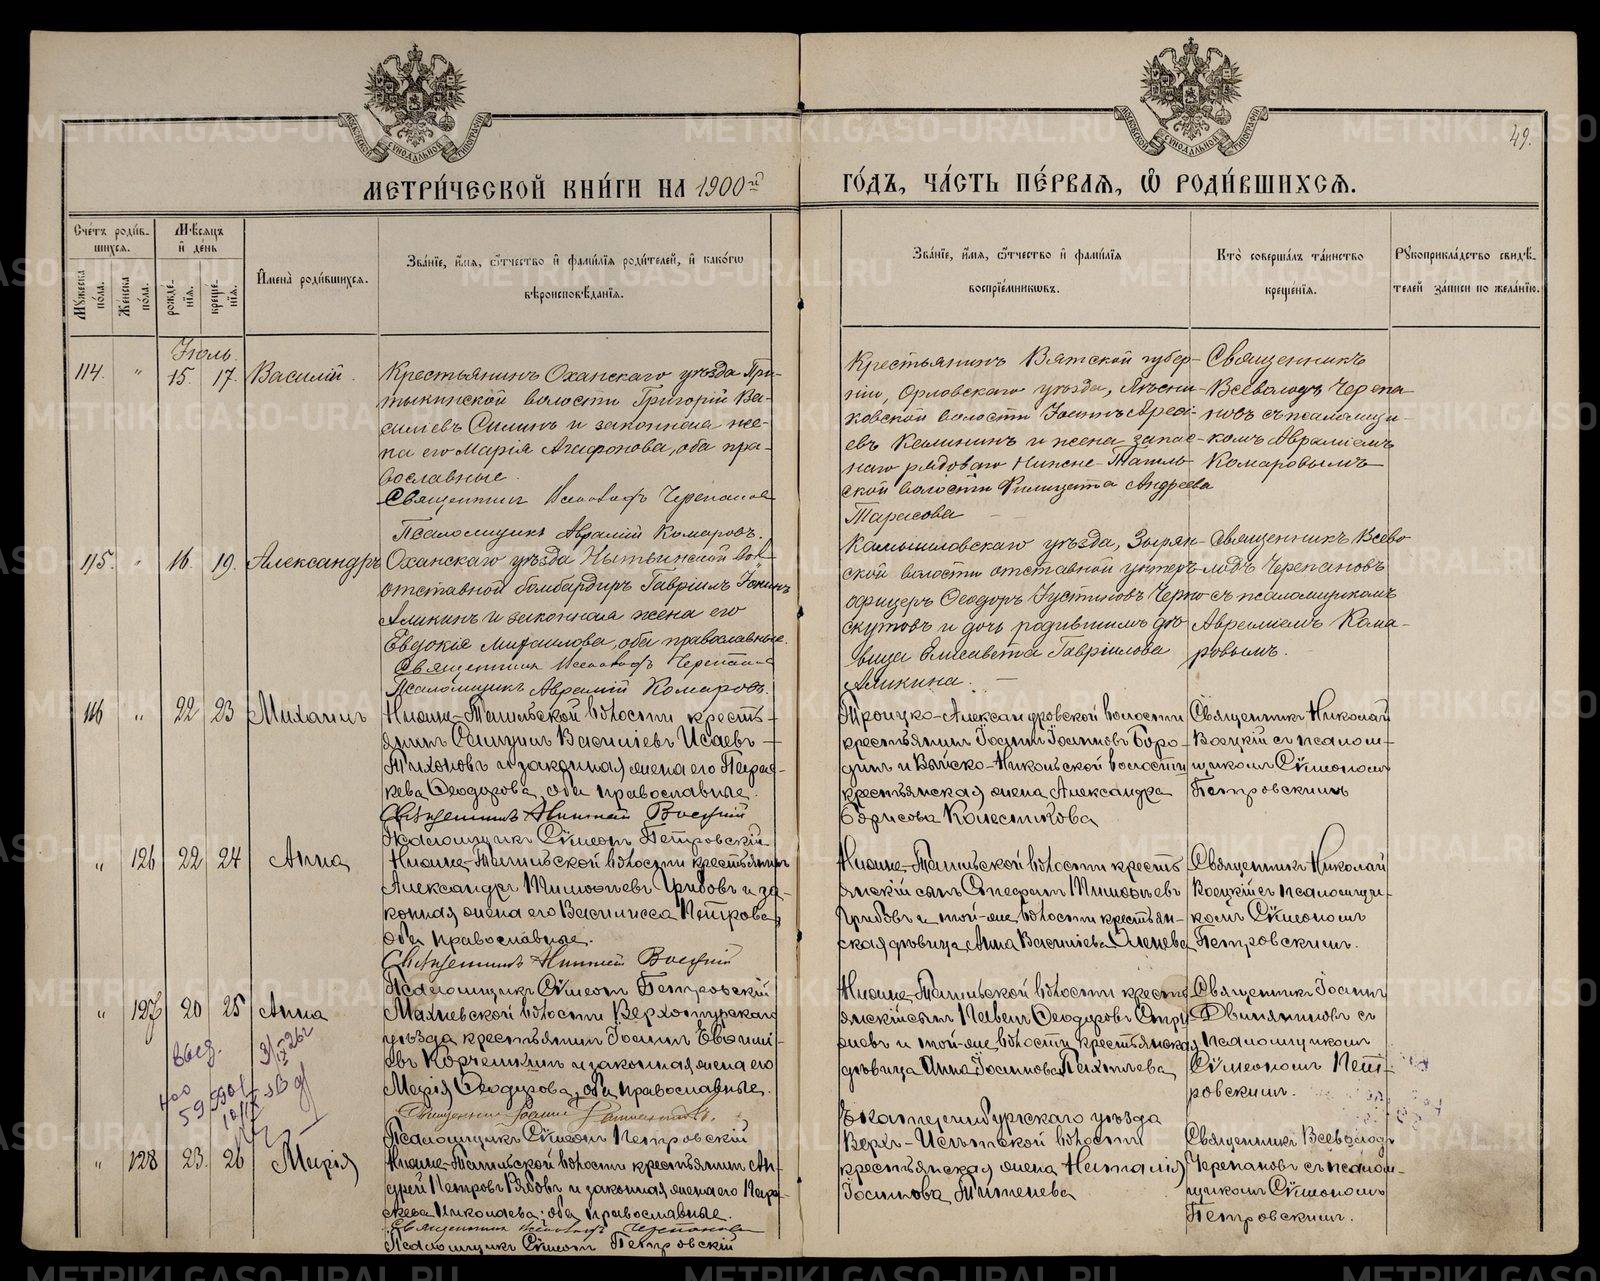 МЕТРИ́ЧЕСКОЙ КНИ́ГИ НА 1900й
ГО́ДЪ, ЧА́СТЬ ПЕ́РВАЯ, Ѡ҆ РОДИ́ВШИХСЯ.
49.
Сче́тъ роди́в-
шихся.
Му́жеска по́ла.
Же́нска по́ла.
Мѣ́сяцъ и҆ де́нь
рожде́нїя.
креще́нїя.
И҆мена̀ роди́вшихся.
Зва́нїе, и҆́мя, ѻ҆́тчество и҆ фами́лїя роди́телей, и҆ како́гѡ
вѣроисповѣ́данїя.
Зва́нїе, и҆́мя, ѻ҆́тчество и҆ фами́лїя
воспрїе́мниковъ.
Кто̀ соверша́лъ та́инство
креще́нїя.
Рꙋкоприкла́дство свидѣ́-
телей за́писи по жела́нїю.
Іюль.
114. " 15. 17. Василій.
Крестьянинъ Оханскаго уѣзда При-
тыкинской волости Григорій Ва-
сильевъ Силинъ и законная же-
на его Марія Агафонова, оба пра-
вославные.
Священникъ Всеволодъ Черепановъ
Псаломщикъ Авраамій Комаровъ.
Крестьянинъ Вятской губер-
ніи, Орловскаго уѣзда,
ковской волости Іоаннъ
евъ Калининъ и жена запас-
наго рядоваго Нижне-Тагиль-
ской волости Филицата Андреева
Тарасова
Священникъ
Всеволодъ Черепа-
новъ съ псаломщи-
комъ Авраміемъ
Комаровымъ
115. " 16. 19. Александръ
Оханскаго уѣзда Нытвинской вол.
отставной бомбардиръ Гавріилъ Іонинъ
Аликинъ и законная жена его
Евдокія Михаилова, оба православные.
Священникъ Всеволодъ Черепановъ
Псаломщикъ Авраамій Комаровъ.
Камышловскаго уѣзда, Зырян-
ской волости отставной унтеръ-
офицеръ Ѳеодоръ Іустиновъ Черно-
скутовъ и дочь родившимъ дѣ-
вица Елисавета Гавріилова
Аликина.
Священникъ Всево-
лодъ Черепановъ
съ псаломщикомъ
Авраміемъ Кома-
ровымъ.
116 " 22 23 Михаилъ
Нижне-Тагильской волости кресть-
янинъ Василіевъ Исаевъ
Тихоновъ и законная жена его Парас-
кева Ѳеодорова, оба православные.
Священникъ Николай Воецкій
Псаломщикъ Сѵмеонъ Петровскій
Троицко-Александровской волости
крестьянинъ Іоаннъ Іоанновъ Боро-
динъ и Выйско-Никольской волости
крестьянская жена Александра
Борисова Колестикова
Священникъ Николай
Воецкій съ псалом-
щикомъ Сѵмеономъ
Петровскимъ
" 126 22 24 Анна
Нижне-Тагильской волости крестьянинъ
Александръ Тимоѳеевъ Грибовъ и за-
конная жена его Василисса Петрова,
оба православные.
Священникъ Николай Воецкій
Псаломщикъ Сѵмеонъ Петровскій
Нижне-Тагильской волости кресть-
янскій сынъ Онефимъ Тимоѳеевъ
Грибовъ и той-же волости крестьян-
ская дѣвица Анна Василіева Оленева
Священникъ Николай
Воецкій съ псаломщи-
комъ Сѵмеономъ
Петровскимъ.
" 127 20 25 Анна
Махневской волости Верхотурскаго
уѣзда крестьянинъ Іоаннъ
евъ Корчемкинъ и законная жена его
Марія Ѳеодорова, оба православные.
Священникъ Іоаннъ
Псаломщикъ Сѵмеонъ Петровскій
Нижне-Тагильской волости кресть-
янскій сынъ Павелъ Ѳеодоровъ
и той-же волости крестьянская
дѣвица Анна Іоаннова
Священникъ Іоаннъ
Двиняниновъ съ
псаломщикомъ
Сѵмеономъ Пет-
ровскимъ.
" 128 23. 26 Марія
Нижне-Тагильской волости крестьянинъ Ан-
дрей Петровъ Рябовъ и законная жена его Пара-
скева Николаева, оба православные.
Священникъ Всеволодъ Черепановъ
Псаломщикъ Сѵмеонъ Петровскій
Екатеринбургскаго уѣзда
Верх-Исетской волости
крестьянская жена Наталія
Іоаннова Титенева
Священникъ Всеволодъ
Черепановъ съ псалом-
щикомъ Сѵмеономъ
Петровскимъ.
METRIKI.GASO-URAL.RU